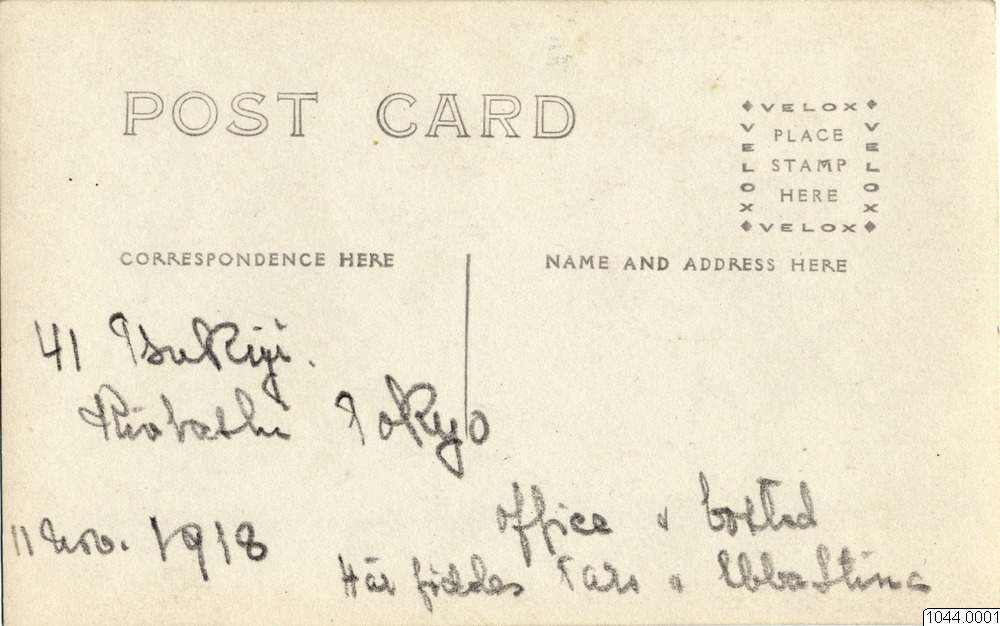 POST CARD
VELOX
VELOX
VELOX
VELOX
PLACE
STAMP
HERE
CORRESPONDENCE HERE
NAME AND ADDRESS HERE
41 Tsukiji.
Kiobashi Tokyo
11 Nov. 1918
office & bostad
Här föddes Lars & Ebba Stina
1044.0001